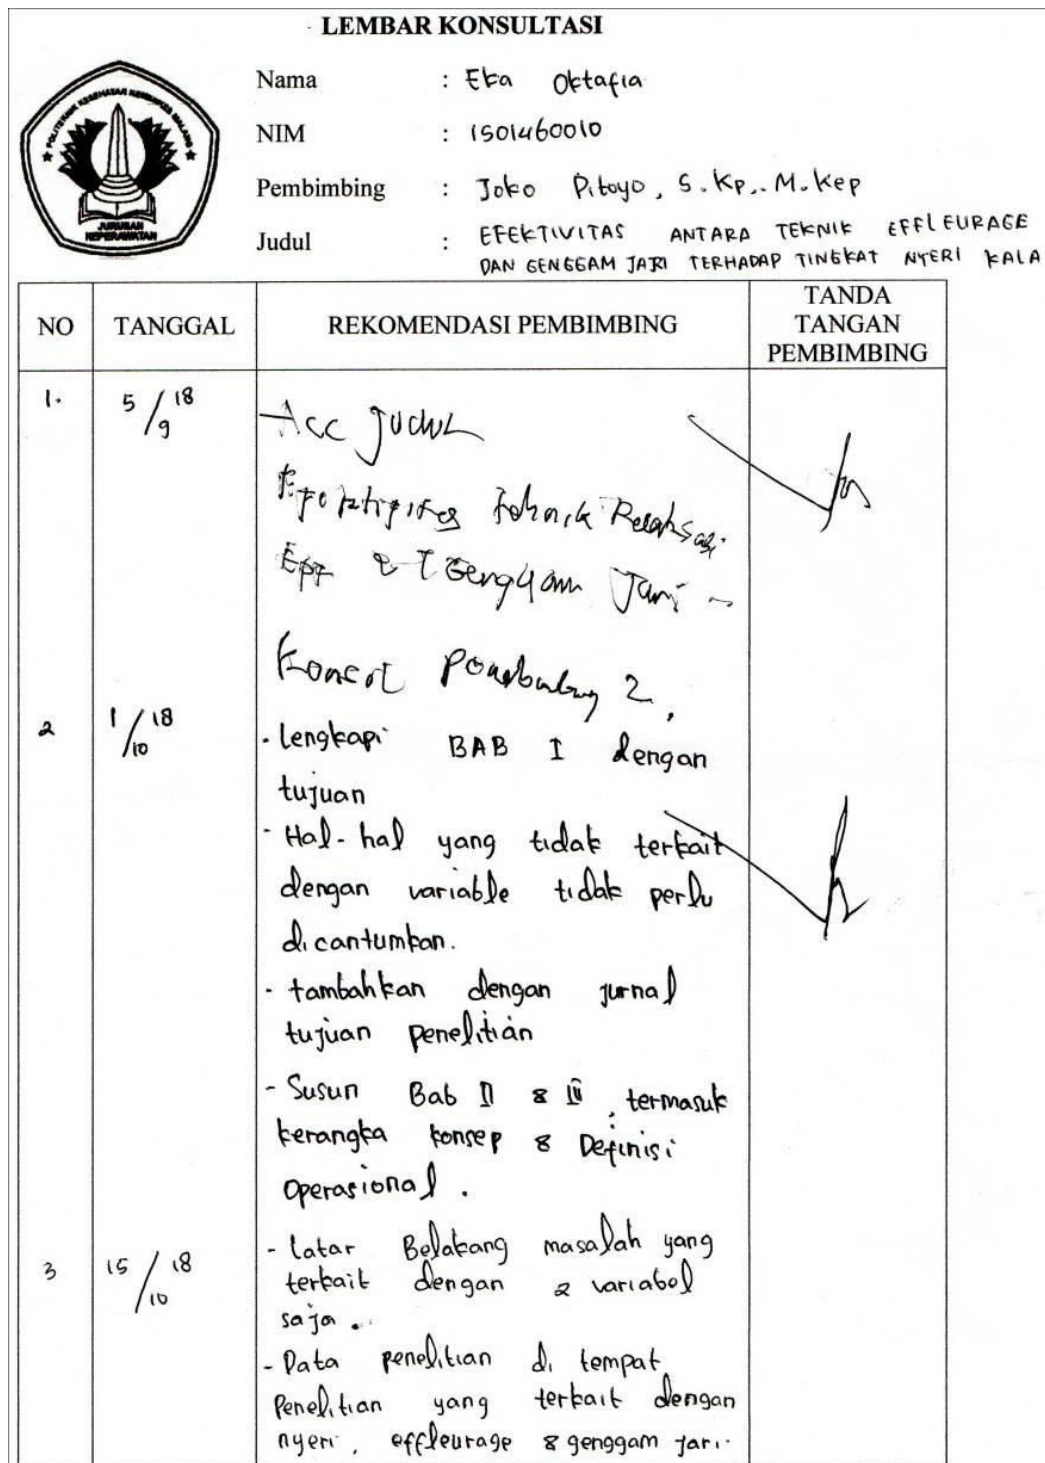 LEMBAR KONSULTASI
POLITEKNIK KESEHATAN KEMENKES MALANG
JURUSAN
KEPERAWATAN
Nama : Eka Oktafia
NIM : 1501460010
Pembimbing : Joko Pitoyo, S.Kp., M.Kep
Judul : EFEKTIVITAS ANTARA TEKNIK EFFLEURAGE
DAN GENGGAM JARI TERHADAP TINGKAT NYERI KALA
NO TANGGAL REKOMENDASI PEMBIMBING TANDA
TANGAN
PEMBIMBING
1. 5/9 18 Acc Judul
Relaksasi
Genggam Jari
2
2 1/10 18 - lengkapi BAB I dengan
tujuan
- Hal-hal yang tidak terkait
dengan variable tidak perlu
dicantumkan.
- tambahkan dengan jurnal
tujuan penelitian
- Susun Bab II & III, termasuk
kerangka konsep & Definisi
Operasional.
3 15/10 18 - latar Belakang masalah yang
terkait dengan 2 variabel
saja.
- Data penelitian di tempat
Penelitian yang terkait dengan
nyeri, effleurage & genggam jari.